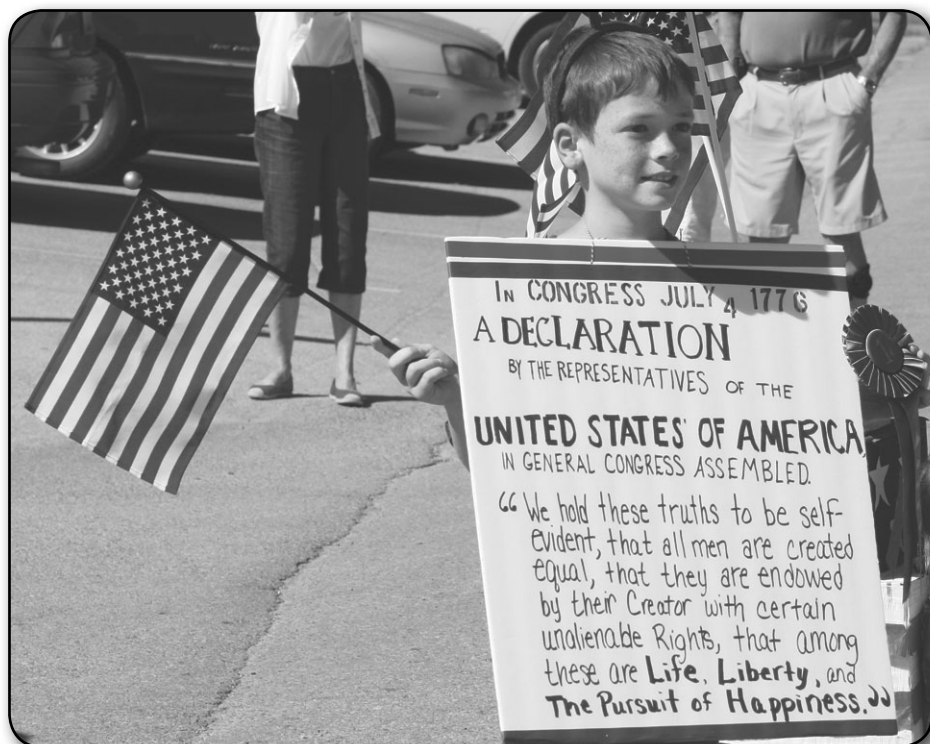 IN CONGRESS JULY 4 1776
A DECLARATION
BY THE REPRESENTATIVES OF THE
UNITED STATES OF AMERICA,
IN GENERAL CONGRESS ASSEMBLED.
“We hold these truths to be self-
evident, that all men are created
equal, that they are endowed
by their Creator with certain
unalienable Rights, that among
these are Life, Liberty, and
The Pursuit of Happiness.”